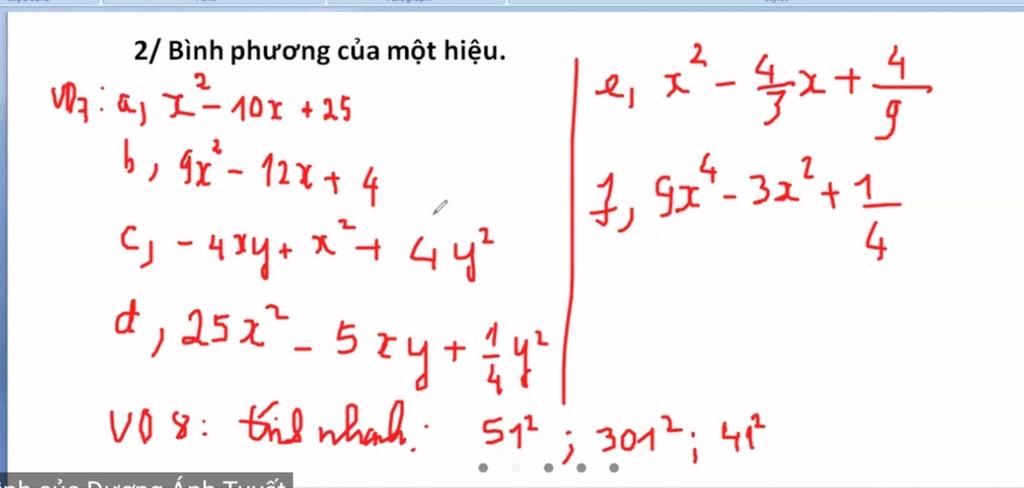 2/ Bình phương của một hiệu.
VD7: a, x² - 10x + 25
b, 9x² - 12x + 4
c, - 4xy + x² + 4y²
d, 25x² - 5xy + 1/4 y²
e, x² - 4/3 x + 4/9
f, 9x⁴ - 3x² + 1/4
VD 8: tính nhanh: 51² ; 301² ; 41²
của Dương Ánh Tuyết